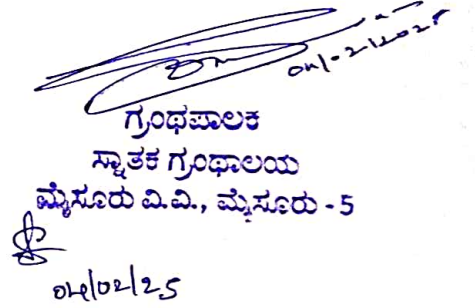 04/02/2025
ಗ್ರಂಥಪಾಲಕ
ಸ್ನಾತಕ ಗ್ರಂಥಾಲಯ
ಮೈಸೂರು ವಿ.ವಿ., ಮೈಸೂರು - 5
04/02/25